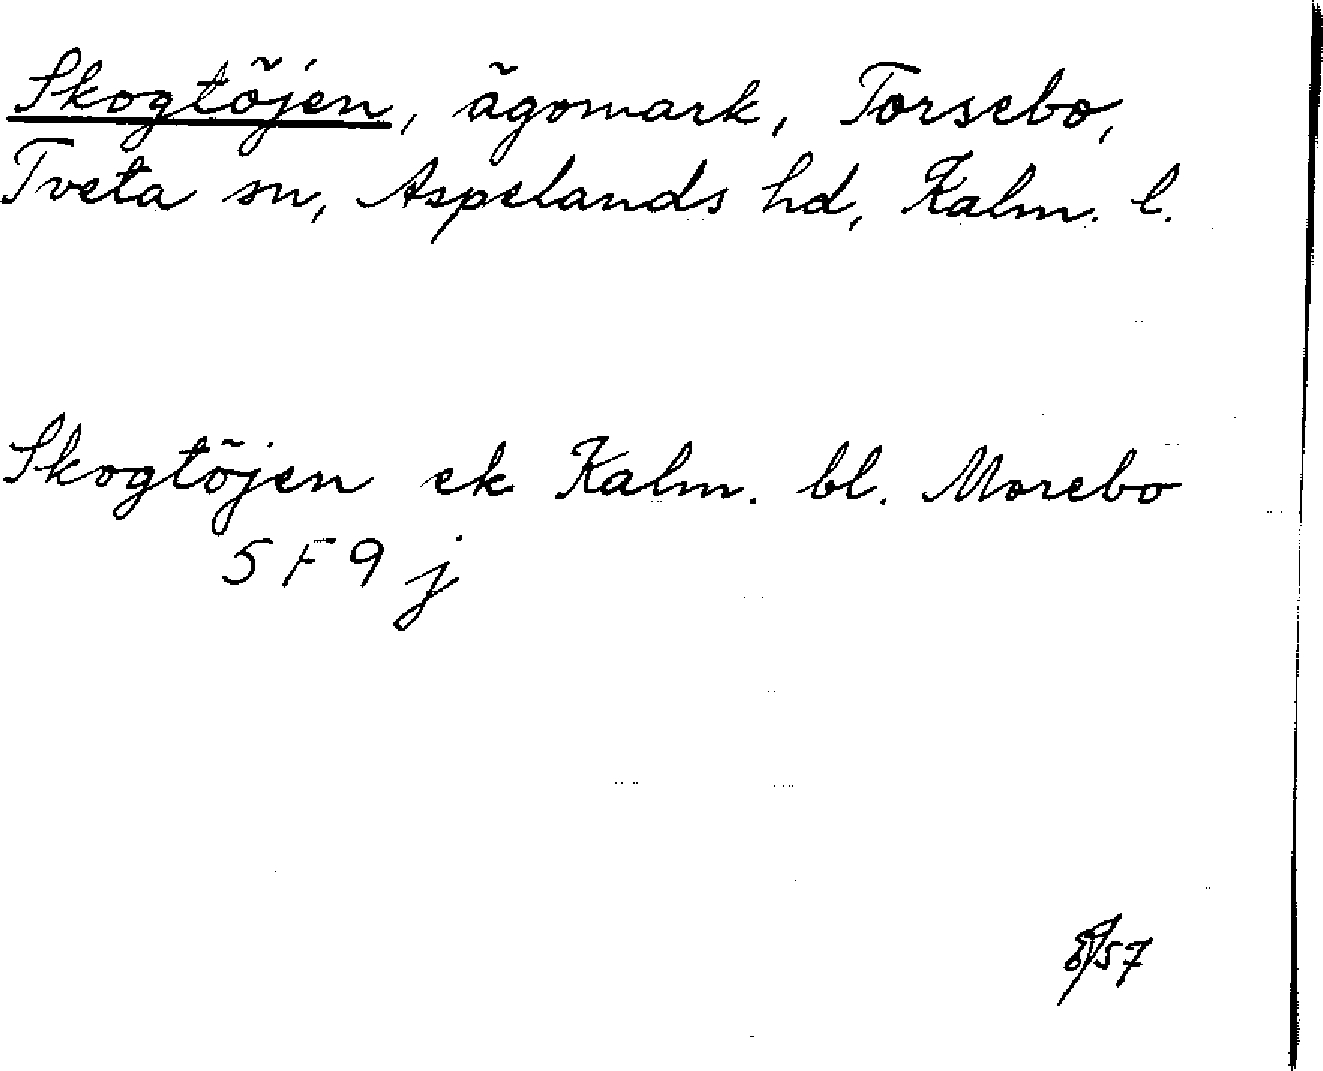 Skogtöjén, ägomark, Torsebo,
Tveta sn, Aspelands hd, Kalm. l.
Skogtöjen ek Kalm. bl. Morebo
5F9j
8/57